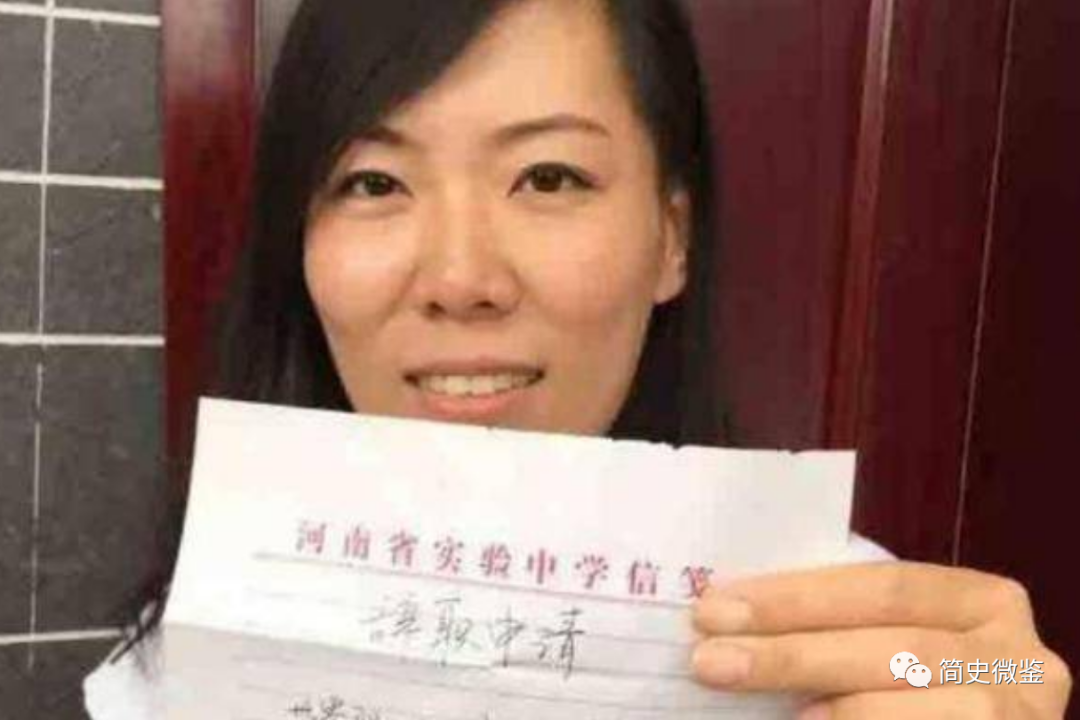 河南省实验中学信笺
辞职申请
世界那
简史微鉴